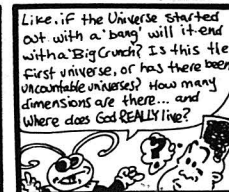 Like, if the Universe started
out with a 'bang' will it end
with a 'Big Crunch? Is this the
first universe, or has there been
uncountable universes? How many
dimensions are there... and
where does God REALLY live?